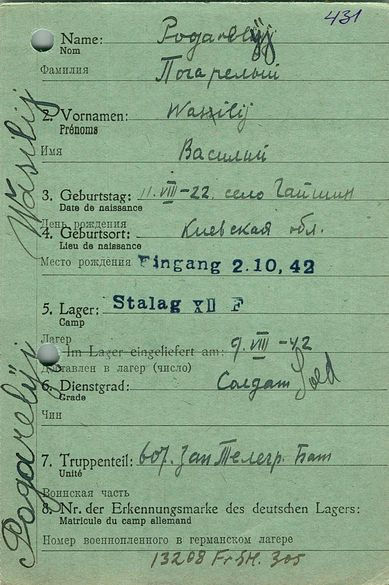 431
1. Name: Pogarelyj
Nom
Фамилия Погарелый
2. Vornamen: Wassilij
Prénoms
Имя Василий
3. Geburtstag: 11. VIII-22. село Гайшин
Date de naissance
День рождения
4. Geburtsort: Киевская обл.
Lieu de naissance
Место рождения Eingang 2.10,42
5. Lager: Stalag XII F
Camp
Лагерь
Im Lager eingeliefert am: 9. VIII-42
Доставлен в лагер (число)
6. Dienstgrad: Салдат Sold
Grade
Чин
7. Truppenteil: 607. зап Телегр. Бат
Unité
Воинская часть
8. Nr. der Erkennungsmarke des deutschen Lagers:
Matricule du camp allemand
Номер военнопленного в германском лагере
13208 Fr. St. 305
Pogarelyj Wasilij